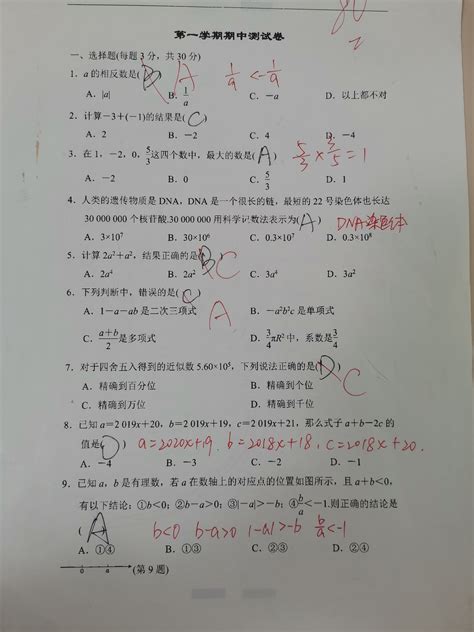 80
2
第一学期期中测试卷
一、选择题(每题 3 分，共 30 分)
1．a 的相反数是( ) A 1/a < -1/a
A．|a| B．1/a C．-a D．以上都不对
2．计算-3+(-1)的结果是(C)
A．2 B．-2 C．4 D．-4
3．在 1，-2，0，5/3这四个数中，最大的数是(A) 5/3 × 3/5 = 1
A．-2 B．0 C．5/3 D．1
4．人类的遗传物质是 DNA，DNA 是一个很长的链，最短的 22 号染色体也长达
30 000 000 个核苷酸.30 000 000 用科学记数法表示为(A) DNA染色体
A．3×10⁷ B．30×10⁶ C．0.3×10⁷ D．0.3×10⁸
5．计算 2a²+a²，结果正确的是(B) C
A．2a⁴ B．2a² C．3a⁴ D．3a²
6．下列判断中，错误的是(C)
A．1-a-ab 是二次三项式 B．-a²b²c 是单项式
A
C．(a+b)/2是多项式 D．3/4πR²中，系数是3/4
7．对于四舍五入得到的近似数 5.60×10⁵，下列说法正确的是(D)
A．精确到百分位 B．精确到个位 C
C．精确到万位 D．精确到千位
8．已知 a=2 019x+20，b=2 019x+19，c=2 019x+21，那么式子 a+b-2c 的
值是(D) a=2020x+19. b=2018x+18, c=2018x+20.
A．-4 B．-3 C．-2 D．-1
9．已知 a，b 是有理数，若 a 在数轴上的对应点的位置如图所示，且 a+b<0，
有以下结论：①b<0；②b-a>0；③|-a|>-b；④b/a<-1.则正确的结论是
(A) b<0 b-a>0 |-a|>-b b/a<-1
A．①④ B．①③ C．②③ D．②④
0 a (第 9 题)